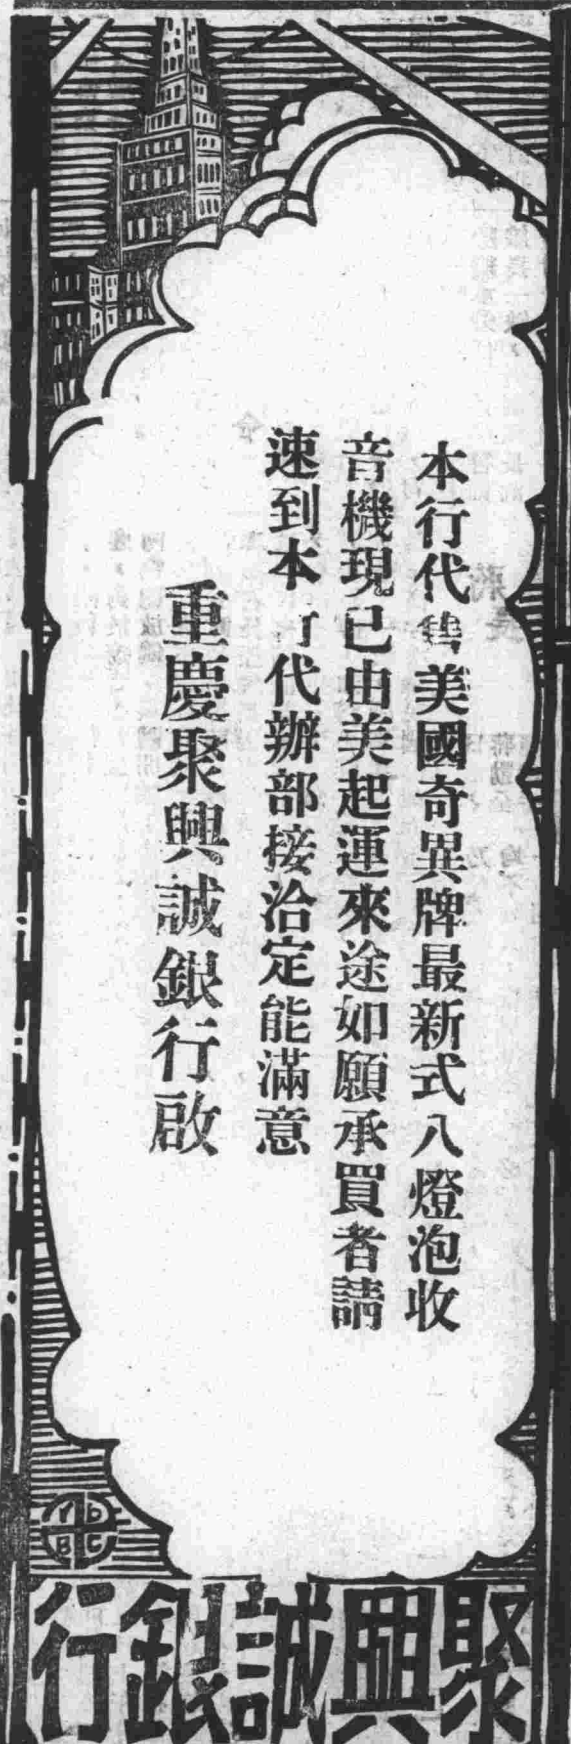 本行代售美國奇異牌最新式八燈泡收
音機現已由美起運來途如願承買者請
速到本行代辦部接洽定能滿意
重慶聚興誠銀行啟
聚興誠銀行